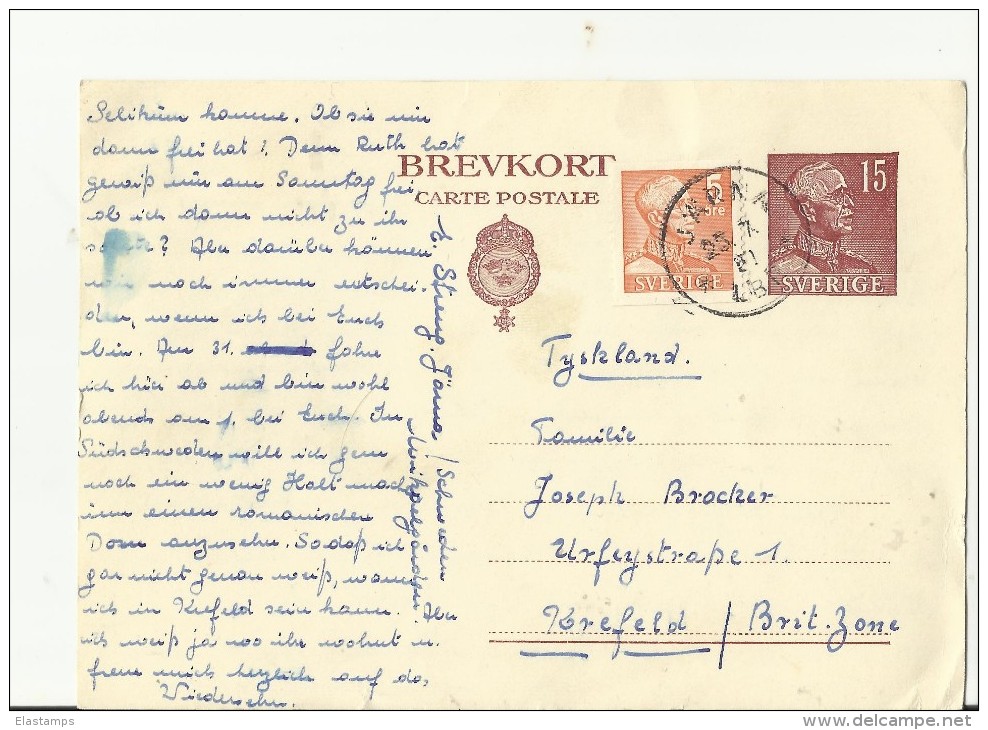 Selikum komme. Ob sie nun
dann frei hat? Denn Ruth hat
gewiß nur am Sonntag frei
ob ich dann nicht zu ihr
sollte? Aber darüber können
wir noch immer entschei-
den, wenn ich bei Euch
bin. Am 31. fahre
ich hier ab und bin wohl
abends am 1. bei Euch. In
Südschweden will ich gern
noch ein wenig Halt machen
um einen romanischen
Dom anzusehn. Sodaß ich
gar nicht genau weiß, wann
ich in Krefeld sein kann. Aber
ich weiß ja wo ihr wohnt u.
freue mich herzlich auf das
Wiedersehn.
E. Streng. Järna / Schweden
Mikaelgården.
BREVKORT
CARTE POSTALE
5
öre
SVERIGE
JÄRNA
25.7
15
SVERIGE
Tyskland.
Familie
Joseph Brocker
Urfeystraße 1.
Krefeld / Brit. Zone
Elastamps
www.delcampe.net